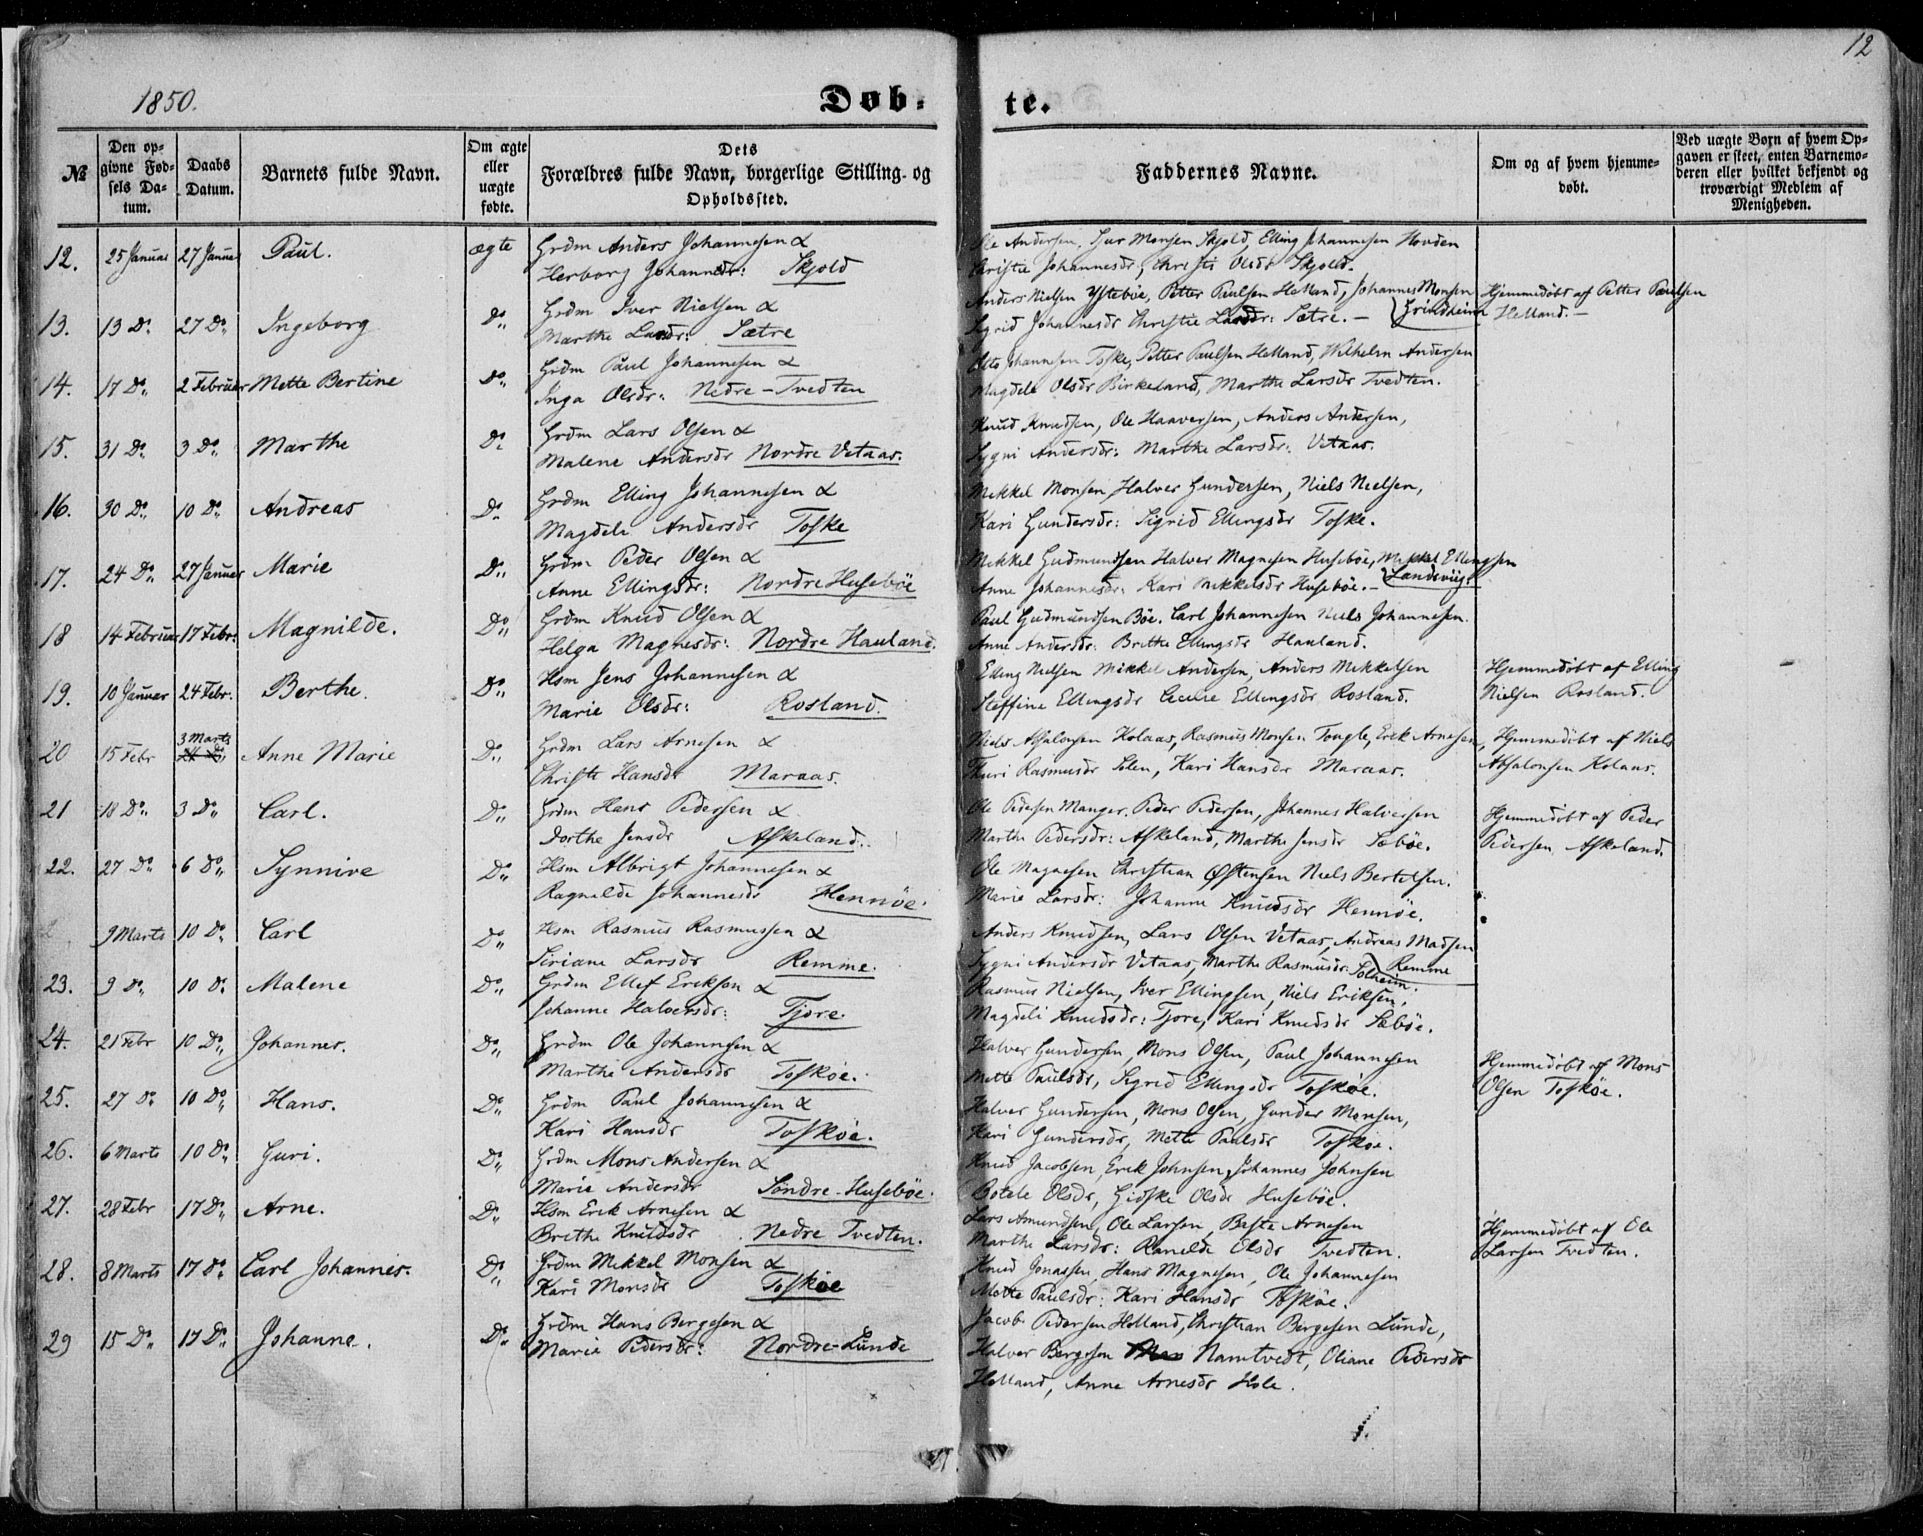 12
1850.
Døb-
te.
№
Den op-
givne Fød-
sels Da-
tum.
Daabs
Datum.
Barnets fulde Navn.
Om ægte
eller
uægte
fødte.
Dets
Forældres fulde Navn, borgerlige Stilling og
Opholdssted.
Faddernes Navne.
Om og af hvem hjemme-
døbt.
Ved uægte Børn af hvem Op-
gaven er skeet, enten Barnemo-
deren eller hvilket bekjendt og
troværdigt Medlem af
Menigheden.
12. 25 Januar 27 Januar Paul. ægte Grdm Anders Johannesen &
Herborg Johannesdr: Skjold
Ole Andersen, Monsen Skjold, Elling Johannesen Hovden
Christie Johannesdr, Christi Olsdr Skjold.
13. 13 Do 27 Do Ingeborg Do Grdm Iver Nielsen &
Marthe Larsdr: Sætre
Anders Nielsen Ystebøe, Petter Paulsen Helland, Johannes Monsen Grindheim
Sigrid Johannesdr Christie Larsdr: Sætre.
Hjemmedøbt af Petter Paulsen
Helland.
14. 17 Do 2 Februar Mette Bertine Do Grdm Paul Johannesen &
Inga Olsdr: Nedre-Tvedten
Otto Johannesen Toske, Petter Paulsen Helland, Wilhelm Andersen
Magdele Olsdr Birkeland, Marthe Larsdr Tvedten.
15. 31 Do 3 Do Marthe Do Grdm Lars Olsen &
Malene Andersdr Nordre Vetaas.
Knud Knudsen, Ole Haaversen, Anders Andersen,
Sygni Andersdr: Marthe Larsdr: Vetaas.
16. 30 Do 10 Do Andreas Do Grdm Elling Johannesen &
Magdeli Andersdr Toske
Mikkel Monsen, Halver Gundersen, Niels Nielsen,
Kari Gundersdr: Sigrid Ellingsdr Toske.
17. 24 Do 27 Januar Marie Do Grdm Peder Olsen &
Anne Ellingsdr: Nordre Husebøe
Mikkel Gudmundsen Halver Magnesen Husebøe, Mikkel Ellingsen
Anne Johannesdr: Kari Mikkelsdr Husebøe. Landsviig.
18 14 Februar 17 Febr: Magnilde. Do Grdm Knud Olsen &
Helga Magnesdr: Nordre Hauland.
Paul Gudmundsen Bøe. Carl Johannesen Niels Johannesen.
Anne Andersdr: Brithe Ellingsdr Hauland.
19. 10 Januar 24 Febr. Berthe. Do Hsm Jens Johannesen &
Marie Olsdr: Rosland.
Elling Nielsen Mikkel Andersen, Anders Mikkelsen
Steffine Ellingsdr Cecilie Ellingsdr Rosland.
Hjemmedøbt af Elling
Nielsen Rosland.
20 15 Febr 3 Marts Anne Marie Do Grdm Lars Arnesen &
Christi Hansdr Maraas.
Niels Absalonsen Kolaas, Rasmus Monsen Tongle, Erik Arnesen,
Thuri Rasmusdr Solen, Kari Hansdr Maraas.
Hjemmedøbt af Niels
Absalonsen Kolaas.
21 18 Do 3 Do Carl. Do Grdm Hans Pedersen &
Dorthe Jensdr Askeland.
Ole Pedersen Manger. Peder Pedersen, Johannes Halversen
Marthe Pedersdr: Askeland, Marthe Jensdr Sæbøe.
Hjemmedøbt af Peder
Pedersen Askeland.
22. 27 Do 6 Do Synnive Do Hsm Albrigt Johannesen &
Ragnilde Johannesdr Hennøe.
Ole Magnesen Christian Østensen Niels Bertelsen.
Marie Larsdr: Johanne Knudsdr Hennøe.
9 Marts 10 Do Carl Do Hsm Rasmus Rasmussen &
Siriane Larsdr Remme.
Anders Knudsen, Lars Olsen Vetaas, Andreas Madsen Remme
Sygni Andersdr Vetaas, Marthe Rasmusdr: Solheim.
23. 9 Do 10 Do Malene Do Grdm Ellef Eriksen &
Johanne Halversdr: Tjore.
Rasmus Nielsen, Iver Ellingsen, Niels Eriksen,
Magdeli Knudsdr: Tjore, Kari Knudsdr Sæbøe.
24. 21 Febr 10 Do Johannes. Do Grdm Ole Johannesen &
Marthe Andersdr Toskøe.
Halver Gundersen, Mons Olsen, Paul Johannesen
Mette Paulsdr, Sigrid Ellingsdr Toskøe.
Hjemmedøbt af Mons
Olsen Toskøe.
25. 27 Do 10 Do Hans. Do Grdm Paul Johannesen &
Kari Hansdr Toskøe.
Halver Gundersen, Mons Olsen, Gunder Monsen,
Kari Gundersdr, Mette Paulsdr Toskøe.
26. 6 Marts 10 Do Guri. Do Grdm Mons Andersen &
Marie Andersdr Søndre-Husebøe.
Knud Jacobsen, Erik Johnsen, Johannes Johnsen
Botele Olsdr, Gidske Olsdr Husebøe.
27. 28 Febr 17 Do Arne. Do Hsm Erik Arnesen &
Brithe Knudsdr Nedre Tvedten.
Lars Amundsen, Ole Larsen, Arnesen
Marthe Larsdr: Ranilde Olsdr Tvedten.
Hjemmedøbt af Ole
Larsen Tvedten.
28. 8 Marts 17 Do Carl Johannes. Do Grdm Mikkel Monsen &
Kari Monsdr Toskøe
Knud Jonassen, Hans Magnesen, Ole Johannesen
Mette Paulsdr: Kari Hansdr Toskøe.
29 15 Do 17 Do Johanne. Do Grdm Hans Bergesen &
Marie Pedersdr: Nordre-Lunde
Jacob Pedersen Helland, Christian Bergesen Lunde,
Halver Bergesen Namtvedt, Oliane Pedersdr
Helland, Anne Arnesdr Hole.